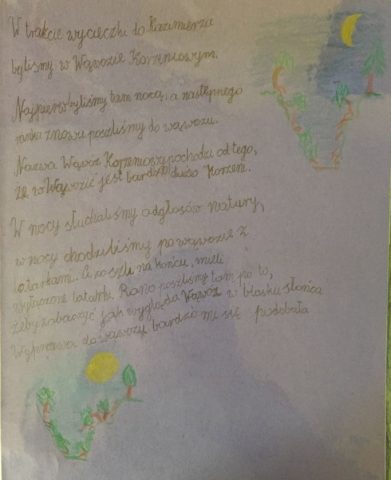 W trakcie wycieczki do Kazimierza
byliśmy w Wąwozie Korzeniowym.
Najpierw byliśmy tam nocą, a następnego
ranka znowu poszliśmy do wąwozu.
Nazwa Wąwóz Korzeniowy pochodzi od tego,
że w Wąwozie jest bardzo dużo Korzeni.
W nocy słuchaliśmy odgłosów natury,
w nocy chodziliśmy po wąwozie z
latarkami. Ci co szli na końcu, mieli
wyłączone latarki. Rano poszliśmy tam po to,
żeby zobaczyć jak wygląda Wąwóz w blasku słońca
Wyprawa do wąwozu bardzo mi się podobała